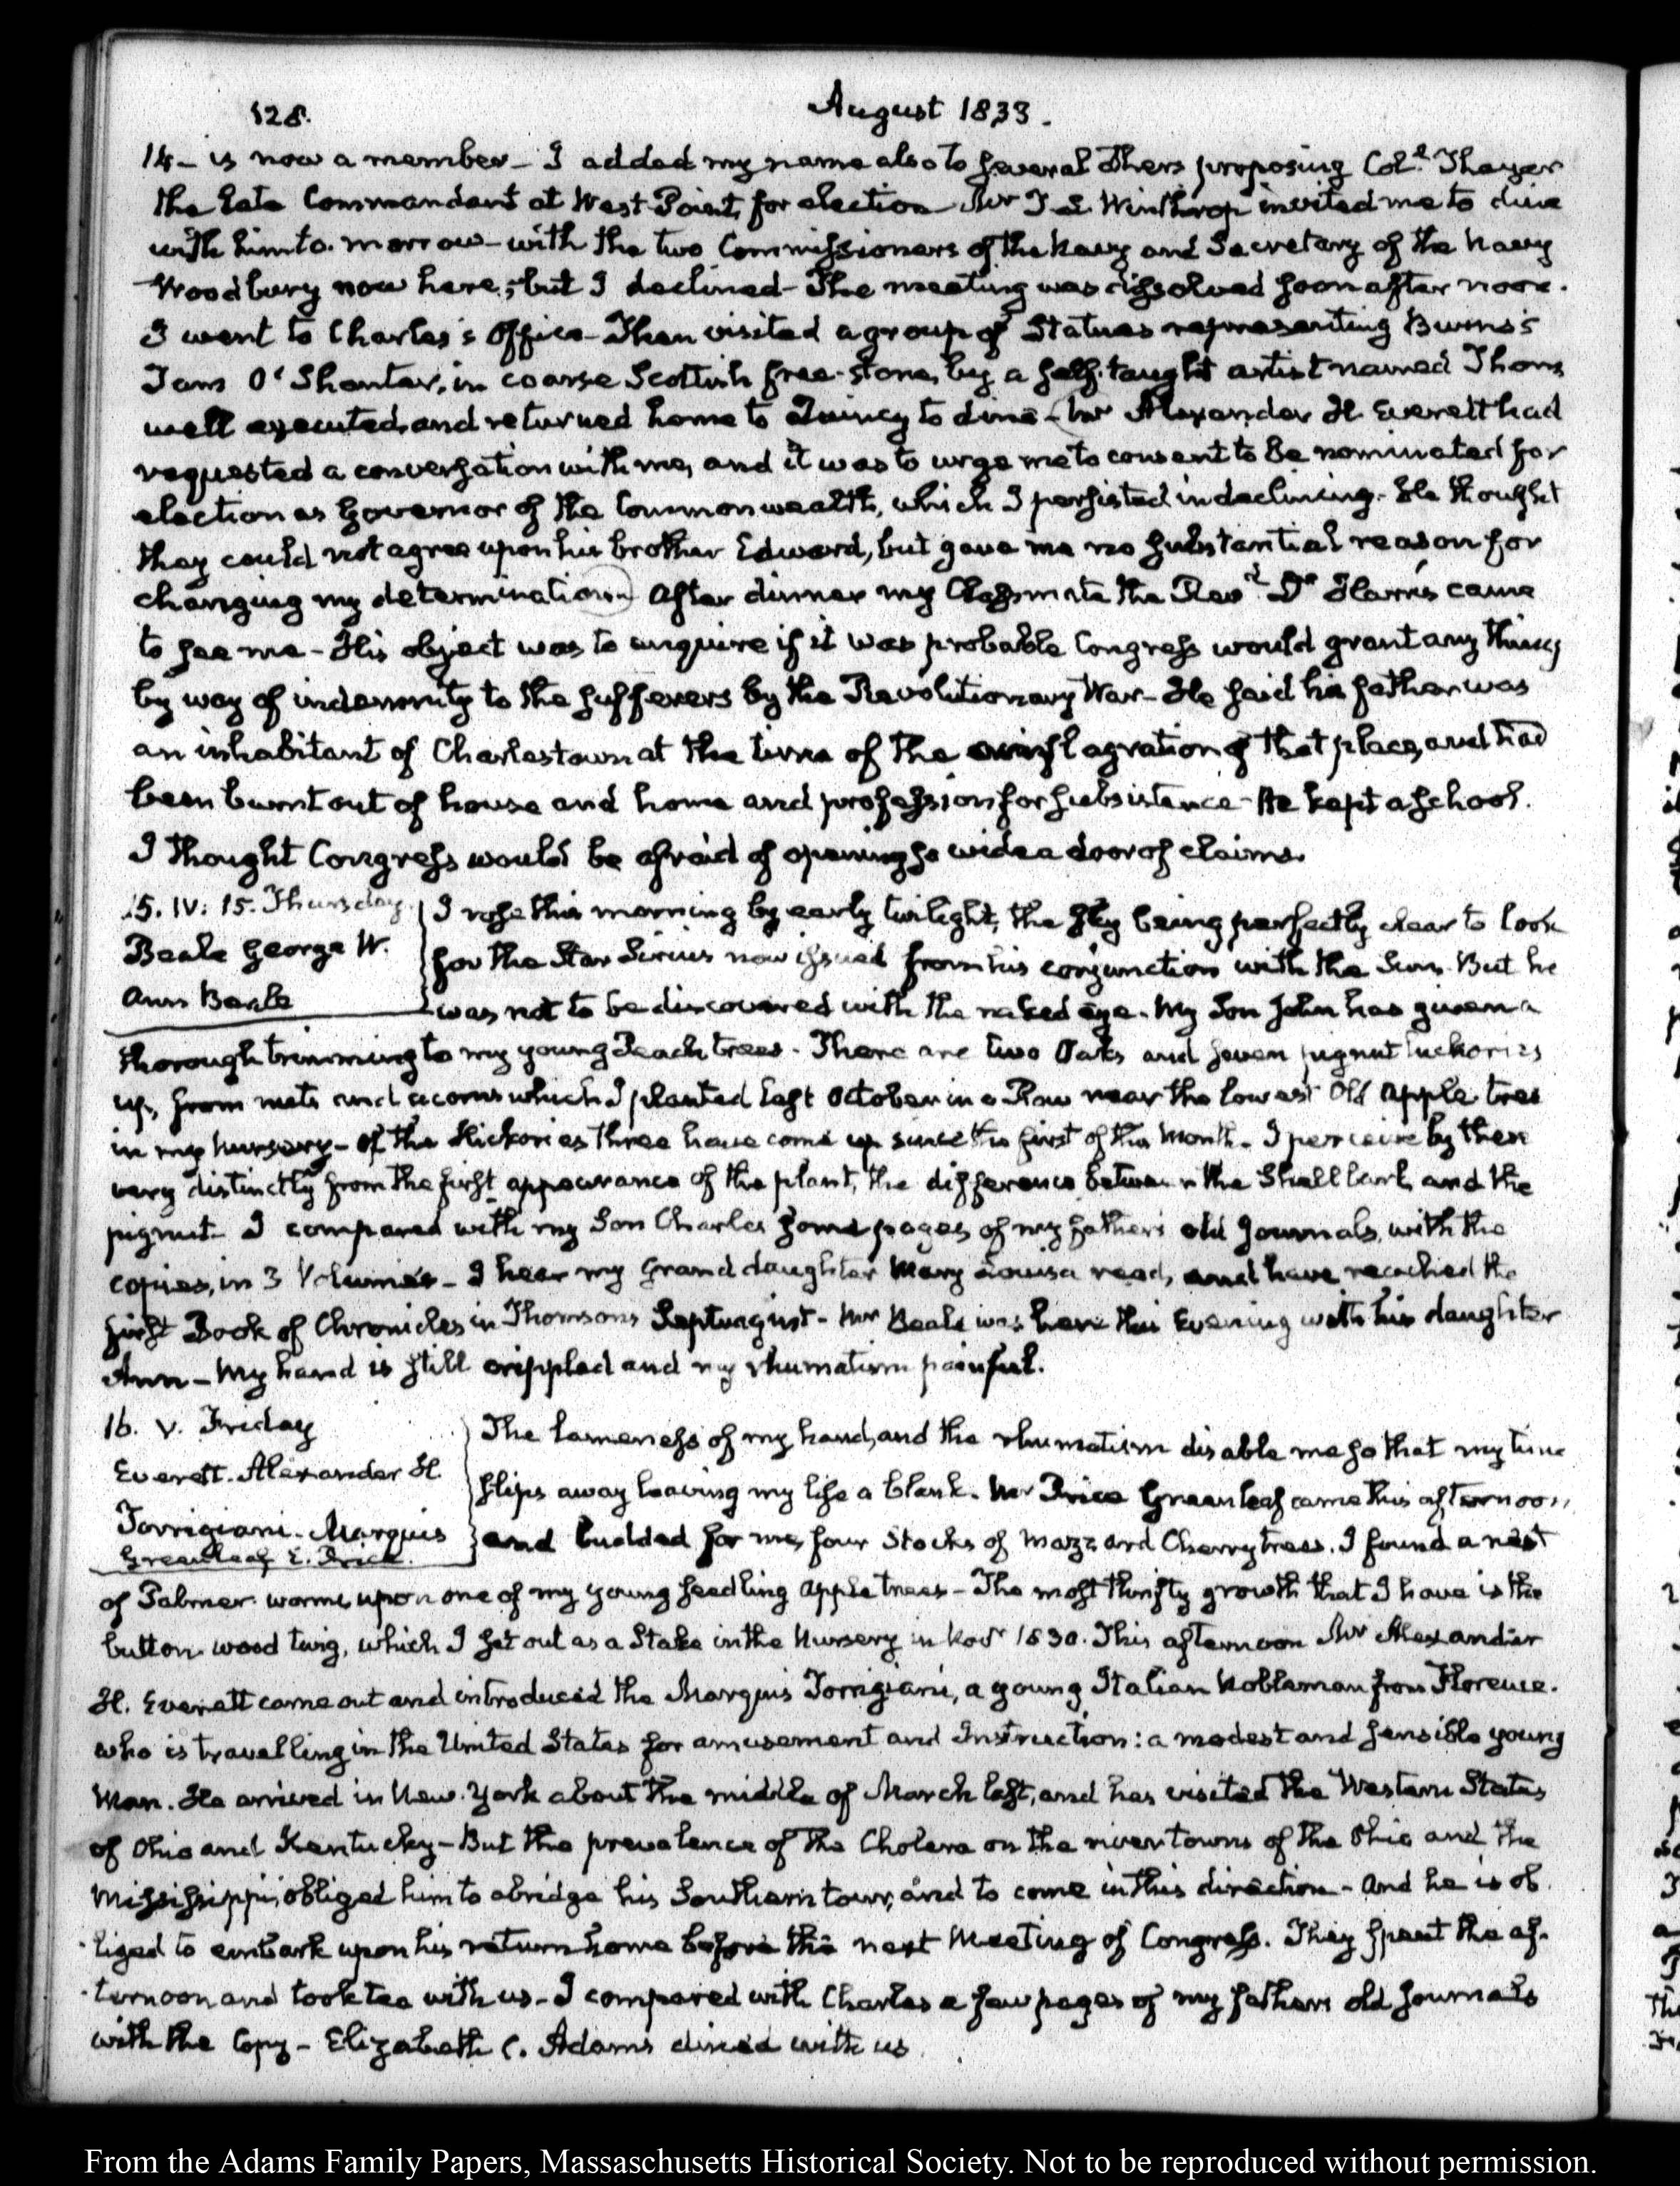 128. August 1833.
14- is now a member- I added my name also to several others proposing Col.l Thayer
the late Commandant at West-Point, for election Mr T. L. Winthrop invited me to dine
with him to-morrow- with the two Commissioners of the Navy and Secretary of the Navy
Woodbury now here; but I declined- The meeting was dissolved soon after noon.
I went to Charles's Office- Then visited a group of Statues representing Burns's
Tam O'Shanter, in coarse Scottish free-stone, by a self-taught artist named Thom,
well executed, and returned home to Quincy to dine- Mr Alexander H Everett had
requested a conversation with me, and it was to urge me to consent to be nominated for
election as Governor of the Commonwealth, which I persisted in declining. He thought
they could not agree upon his brother Edward, but gave me no substantial reason for
changing my determination After dinner my Classmate the Revd Dr Harris came
to see me- His object was to enquire if it was probable Congress would grant any thing
by way of indemnity to the sufferers by the Revolutionary War- He said his father was
an inhabitant of Charlestown at the time of the conflagration of that place, and had
been burnt out of house and home and profession for subsistence- He kept a school.
I thought Congress would be afraid of opening so wide a door of claims.
15. IV: 15. Thursday. I rose this morning by early twilight, the sky being perfectly clear to look
Beale George W. for the Star Sirius now issued from his conjunction with the Sun. But he
Ann Beale was not to be discovered with the naked eye. My Son John has given a
thorough trimming to my young Peach trees- There are two Oaks and seven pignut huckories
up, from nuts and acorns which I planted last October in a Row near the lowest old apple tree
in my Nursery- Of the Hickories three have come up since the first of this Month- I perceive by them
very distinctly from the first appearance of the plant, the difference between the Shellbark and the
pignut- I compared with my Son Charles some pages of my fathers old Journals, with the
copies, in 3 Volumes- I hear my Grand daughter Mary Louisa read, and have reached the
first Book of Chronicles in Thomsons Septuagint- Mr Beale was here this Evening with his daughter
Ann- My hand is still crippled and my rhumatism painful.
16. V. Friday The lameness of my hand, and the rhumatism disable me so that my time
Everett. Alexander H. slips away leaving my life a blank. Mr Price Greenleaf came this afternoon,
Torrigiani- Marquis and budded for me, four Stocks of mazzard Cherry trees. I found a nest
Greenleaf E. Price.
of Palmer-worms upon one of my young seedling apple trees- The most thrifty growth that I have is the
button-wood twig, which I set out as a Stake in the Nursery in Novr 1830. This afternoon Mr Alexander
H. Everett came out and introduced the Marquis Torrigiani, a young Italian Nobleman from Florence.
who is travelling in the United States for amusement and Instruction: a modest and sensible young
Man. He arrived in New-York about the middle of March last, and has visited the Western States
of Ohio and Kentucky- But the prevalence of the Cholera on the river towns of the Ohio and the
Mississippi, obliged him to abridge his Southern tour, and to come in this direction- And he is ob-
liged to embark upon his return home before the next Meeting of Congress. They spent the af-
ternoon and took tea with us- I compared with Charles a few pages of my fathers old Journals
with the Copy- Elizabeth C. Adams dined with us.
From the Adams Family Papers, Massachusetts Historical Society. Not to be reproduced without permission.